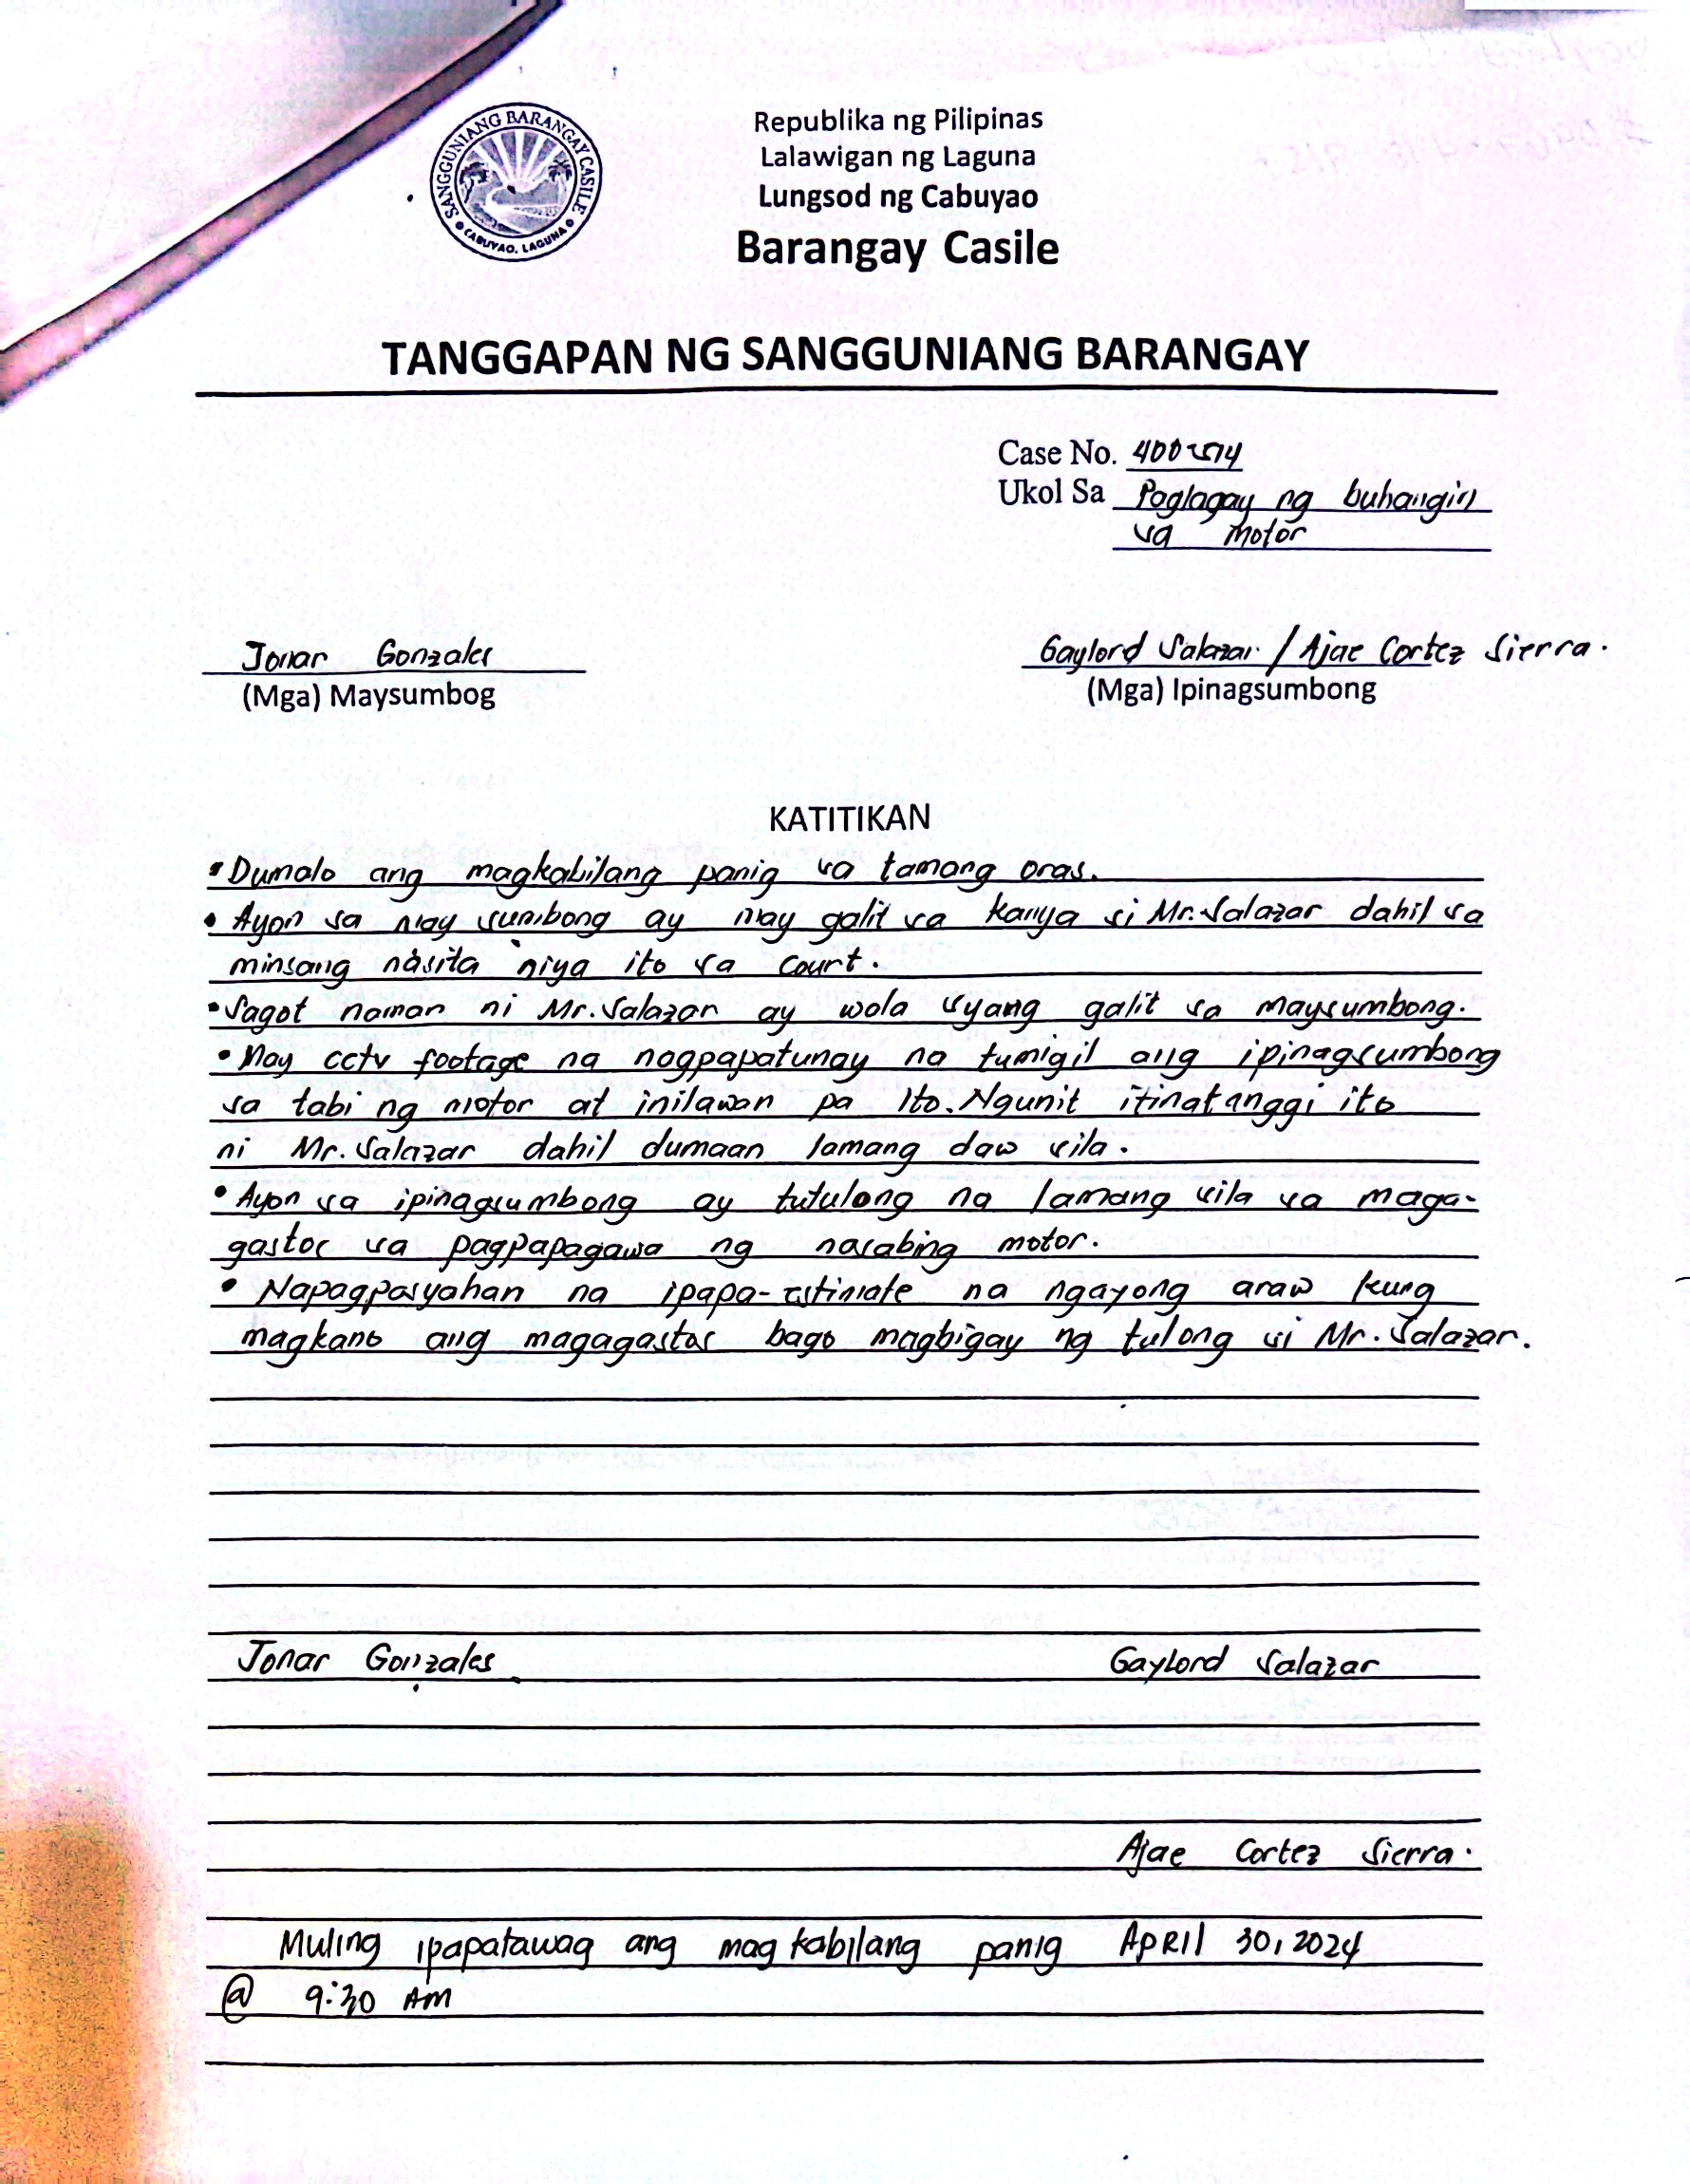 SANGGUNIANG BARANGAY CASILE
CABUYAO, LAGUNA
Republika ng Pilipinas
Lalawigan ng Laguna
Lungsod ng Cabuyao
Barangay Casile
TANGGAPAN NG SANGGUNIANG BARANGAY
Case No.
Ukol Sa Paglagay ng buhangin
sa motor
Jonar Gonzales
(Mga) Maysumbog
Gaylord Salazar / Ajae Cortez Sierra.
(Mga) Ipinagsumbong
KATITIKAN
• Dumalo ang magkabilang panig sa tamang oras.
• Ayon sa may sumbong ay may galit sa kanya si Mr. Salazar dahil sa
minsang nasita niya ito sa court.
• Sagot naman ni Mr. Salazar ay wala syang galit sa maysumbong.
• May cctv footage na nagpapatunay na tumigil ang ipinagsumbong
sa tabi ng motor at inilawan pa ito. Ngunit itinatanggi ito
ni Mr. Salazar dahil dumaan lamang daw sila.
• Ayon sa ipinagsumbong ay tutulong na lamang sila sa maga-
gastos sa pagpapagawa ng nasabing motor.
• Napagpasyahan na ipapa-estimate na ngayong araw kung
magkano ang magagastos bago magbigay ng tulong si Mr. Salazar.
Jonar Gonzales
Gaylord Salazar
Ajae Cortez Sierra.
Muling ipapatawag ang mag kabilang panig April 30, 2024
@ 9:30 AM